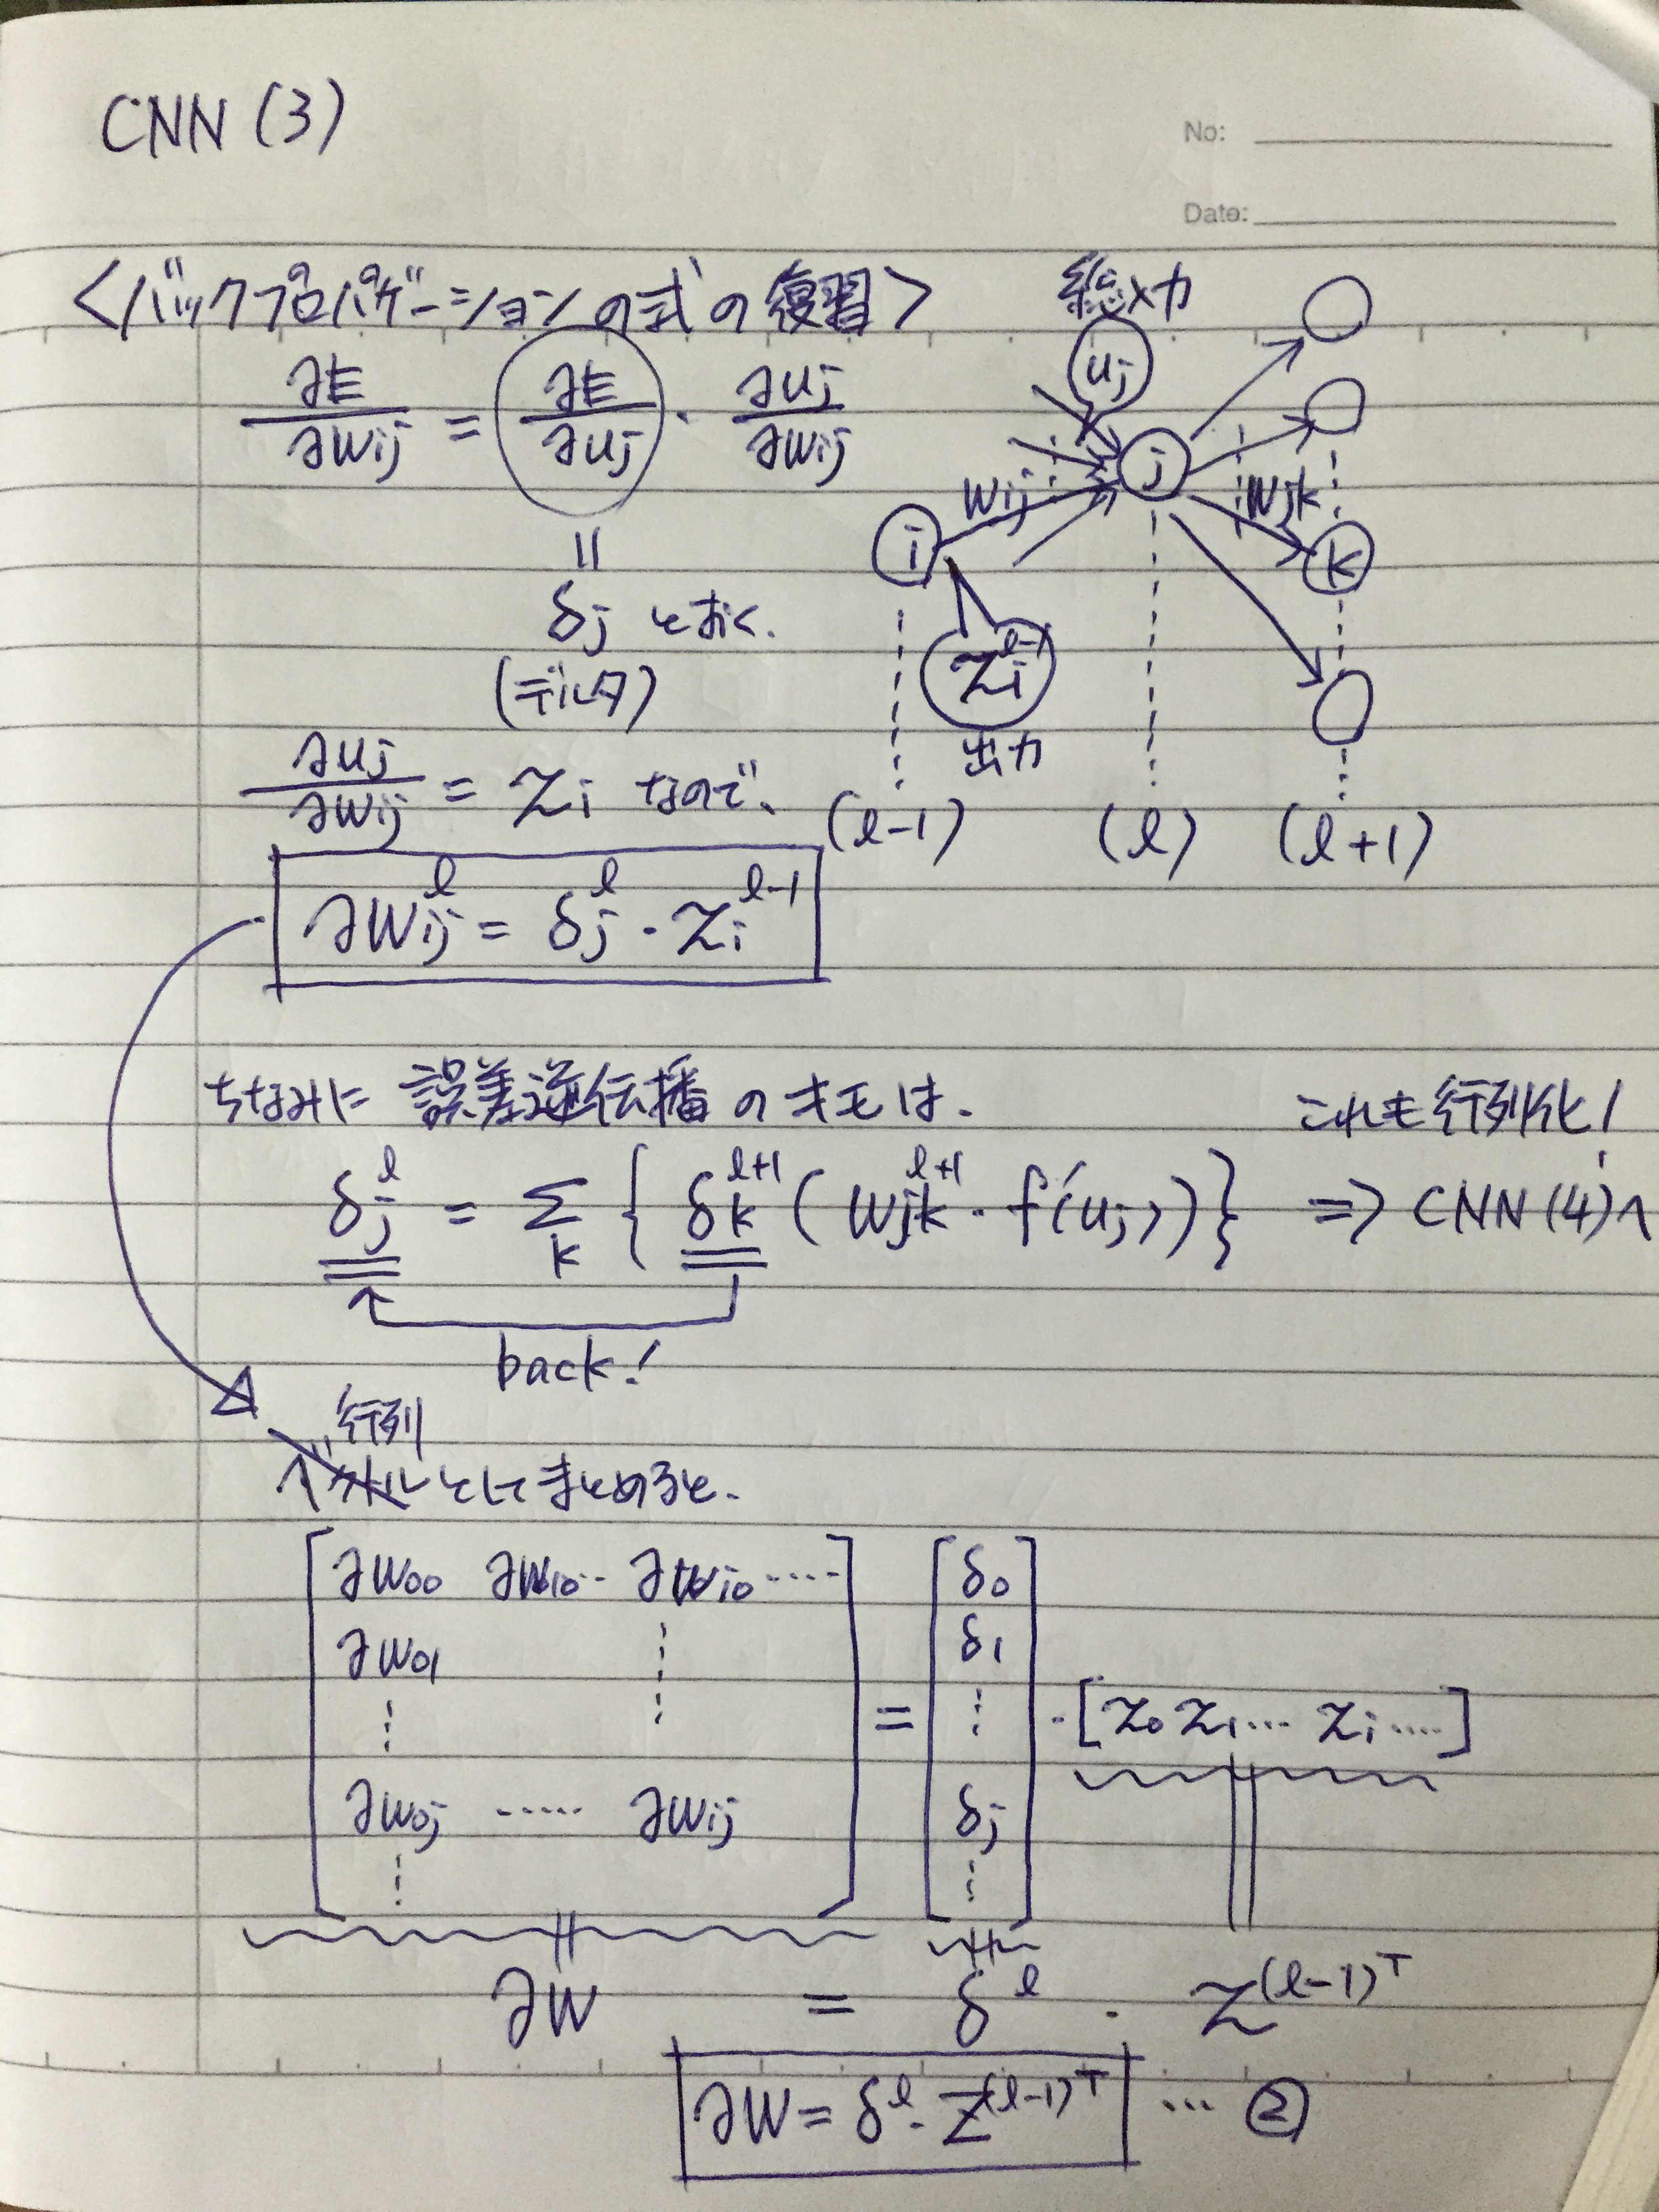 CNN (3)
No:
Date:
<バックプロパゲーションの式の復習>
∂E/∂wij = ∂E/∂uj · ∂uj/∂wij
||
δj とおく.
(デルタ)
総入力
uj
j
wij
wjk
i
k
zi^l-1
出力
(l-1) (l) (l+1)
∂uj/∂wij = zi なので、
∂wij^l = δj^l · zi^l-1
ちなみに 誤差逆伝播 のキモは、
これも行列化!
δj^l = Σk { δk^l+1 ( wjk^l+1 · f'(uj) ) } ⇒ CNN (4)へ
back!
行列
ベクトルとしてまとめると、
[ ∂w00 ∂w10 ·· ∂wi0 ····
∂w01 ⋮
⋮ ⋮
∂w0j ····· ∂wij
⋮ ] = [ δ0 δ1 ⋮ δj ⋮ ] · [ z0 z1 ··· zi ···· ]
∂W = δ^l · Z^(l-1)^T
∂W = δ^l · Z^(l-1)^T ··· ②